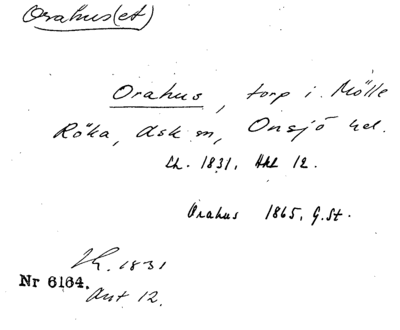 Orahus(et)
Orahus, torp i Mölle
Röka, Ask sn, Onsjö hd.
Lh. 1831, Akt 12.
Orahus 1865, G.St.
Lh. 1831
Nr 6164.
Akt 12.